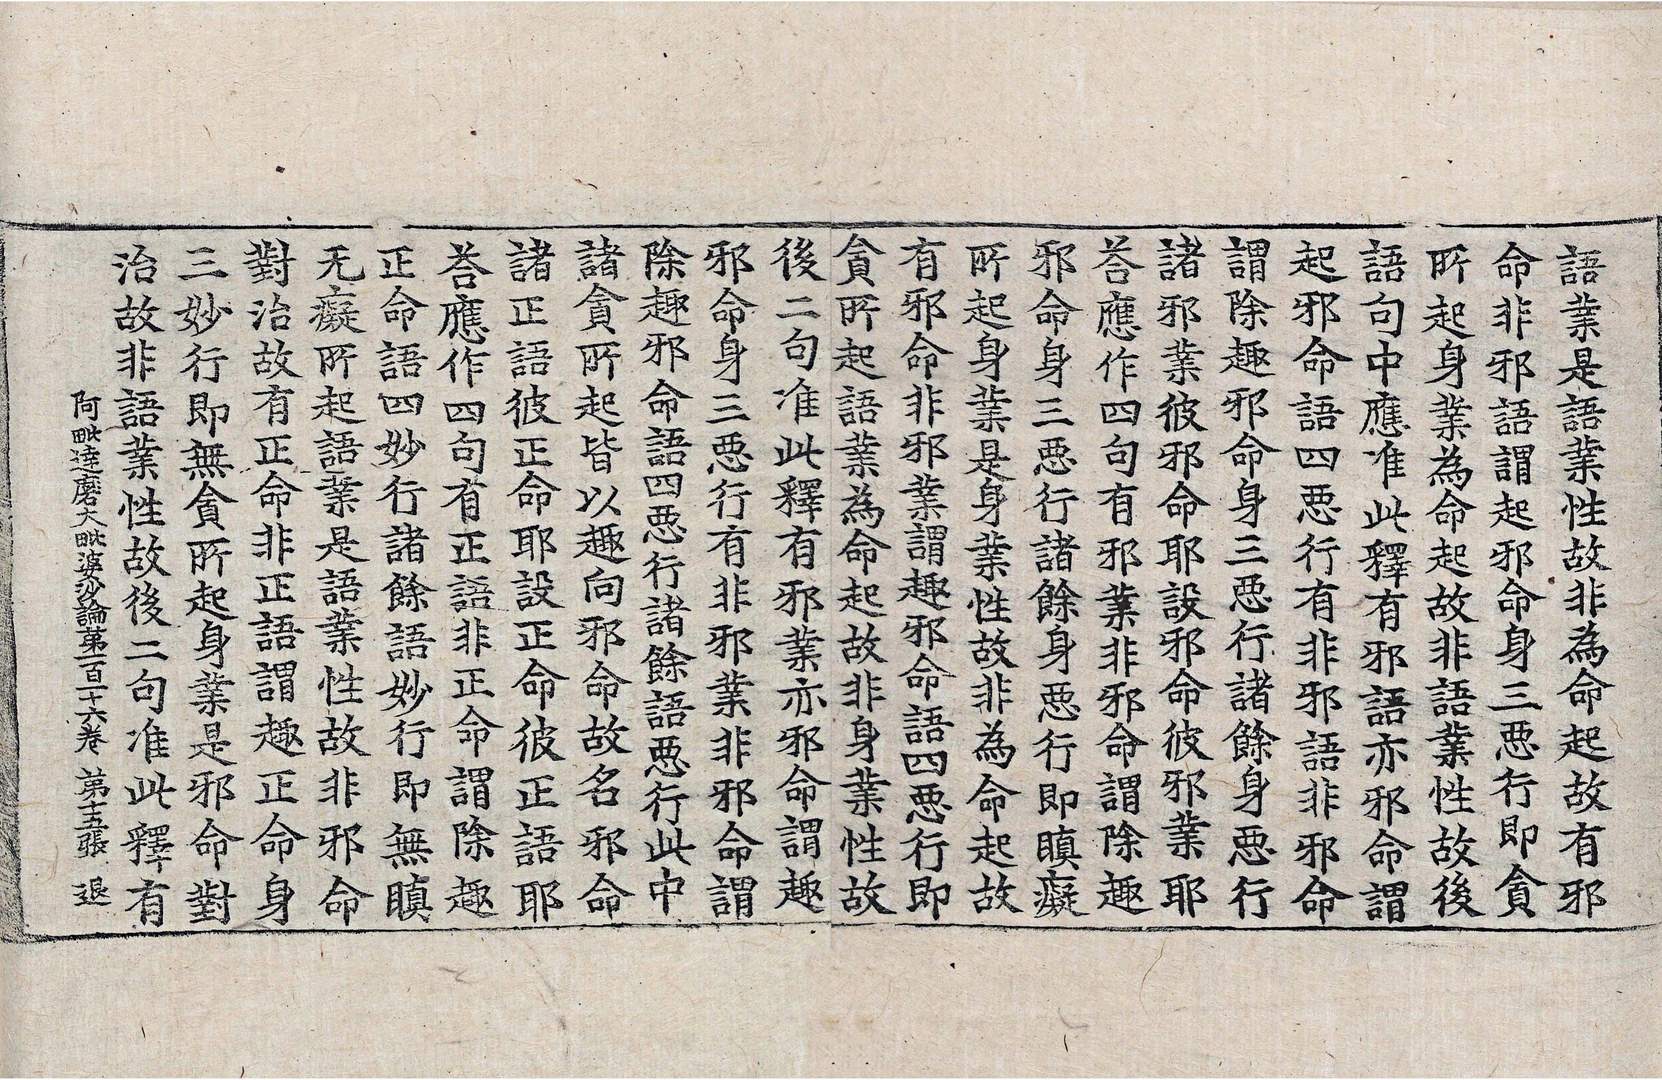 語業是語業性故非為命起故有邪
命非邪語謂起邪命身三惡行即貪
所起身業為命起故非語業性故後
語句中應准此釋有邪語亦邪命謂
起邪命語四惡行有非邪語非邪命
謂除趣邪命身三惡行諸餘身惡行
諸邪業彼邪命耶設邪命彼邪業耶
荅應作四句有邪業非邪命謂除趣
邪命身三惡行諸餘身惡行即瞋癡
所起身業是身業性故非為命起故
有邪命非邪業謂趣邪命語四惡行即
貪所起語業為命起故非身業性故
後二句准此釋有邪業亦邪命謂趣
邪命身三惡行有非邪業非邪命謂
除趣邪命語四惡行諸餘語惡行此中
諸貪所起皆以趣向邪命故名邪命
諸正語彼正命耶設正命彼正語耶
荅應作四句有正語非正命謂除趣
正命語四妙行諸餘語妙行即無瞋
无癡所起語業是語業性故非邪命
對治故有正命非正語謂趣正命身
三妙行即無貪所起身業是邪命對
治故非語業性故後二句准此釋有
阿毗達磨大毗婆沙論第一百一十六卷 第十五張 退